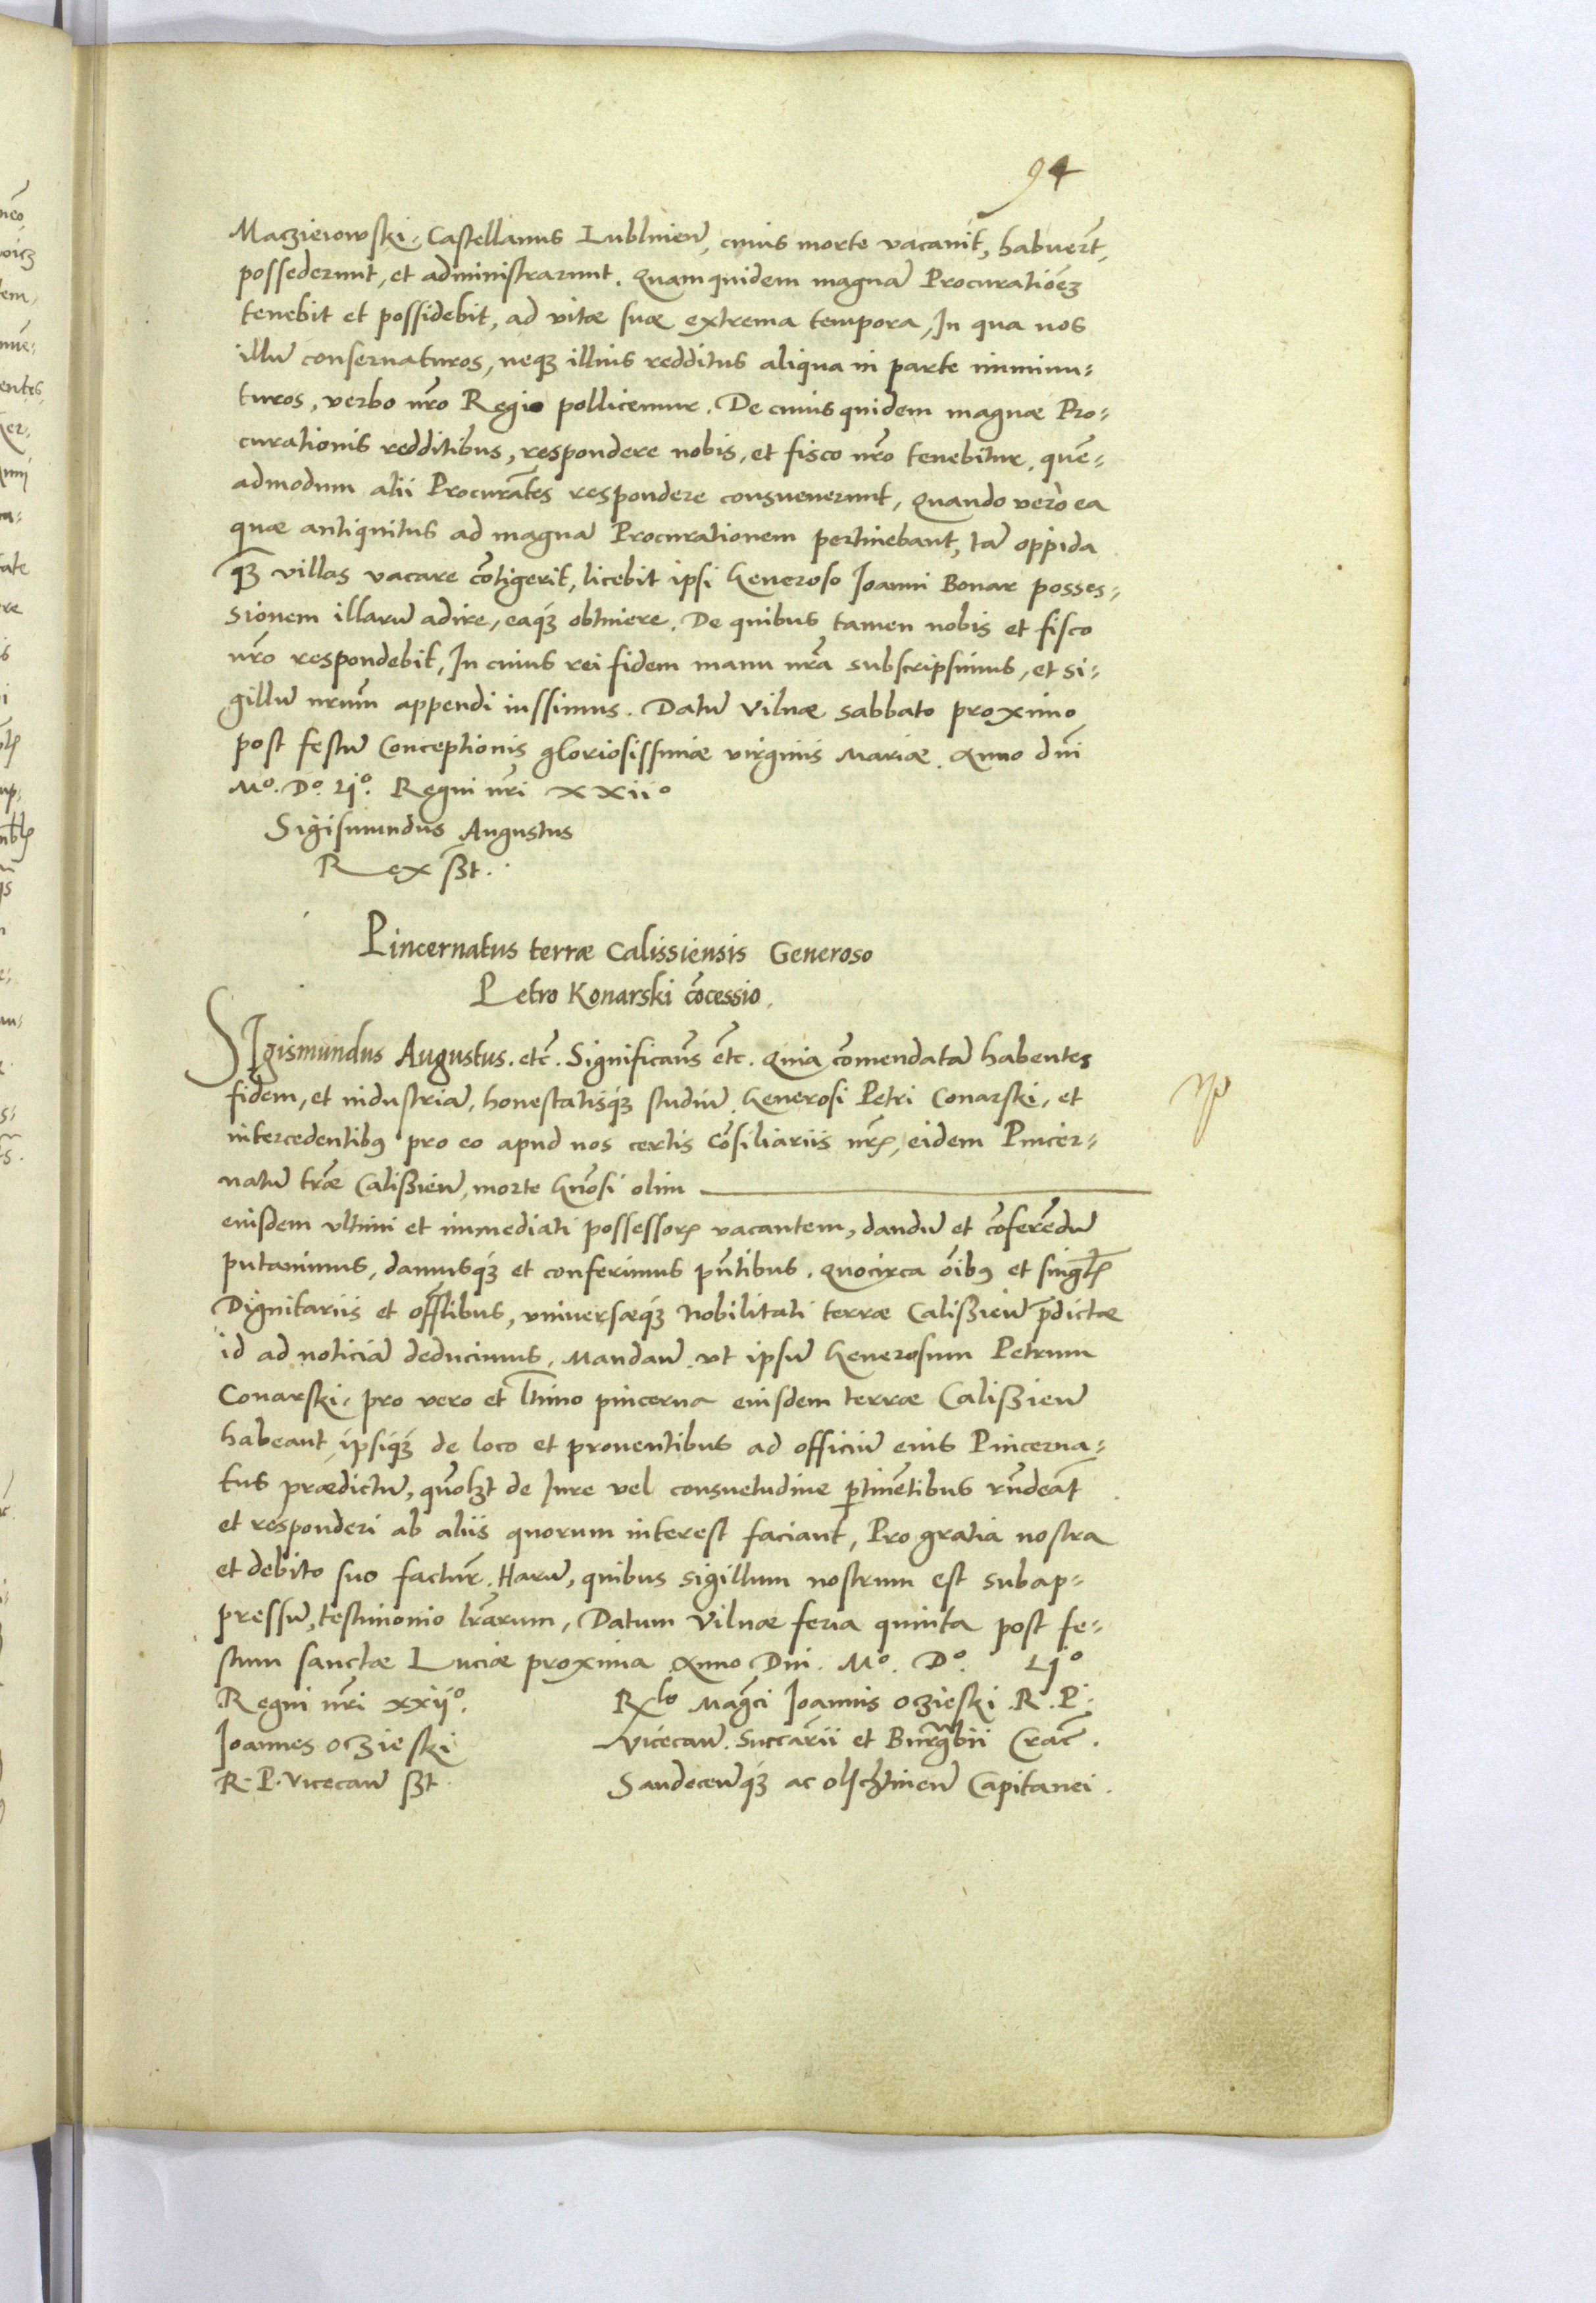 94
Maczieiowski, Castellanus Lublineñ, cuius morte vacauit, habuert̃,
possederunt, et administrarunt. Quam quidem magnã Procuratiõez
tenebit et possidebit, ad vitæ suæ extrema tempora, In qua nos
illũ conseruaturos, neqꝫ illius redditus aliqua in parte imminu-
turos, verbo nr̃o Regio pollicemur. De cuius quidem magnæ Pro-
curationis redditibus, respondere nobis, et fisco nr̃o tenebitur, quẽ-
admodum alii Procurãtes respondere consueuerunt, Quando vero ea
quæ antiquitus ad magnã Procurationem pertinebant, tã oppida
q̃ꝫ villas vacare cõtigerit, licebit ipsi Generoso Joanni Bonar posses-
sionem illarũ adire, eaqꝫ obtinere. De quibus tamen nobis et fisco
nr̃o respondebit, In cuius rei fidem manu nr̃a subscripsimus, et si-
gillũ nrũm appendi iussimus. Datũ Vilnæ sabbato proximo
post festũ Conceptionis gloriosissimæ virginis Mariæ. Anno dñi
Mº. Dº. Ljº. Regni nr̃i xxiiº
Sigismundus Augustus
Rex sst.
Pincernatus terræ Calissiensis Generoso
Petro Konarski cõcessio.
SIgismundus Augustus. etc̃. Significam̃s et̃c. Quia cõmendatã habentes
fidem, et industriã, honestatisqꝫ studiũ Generosi Petri Conarski, et
intercedentibꝯ pro eo apud nos certis Cõsiliariis nr̃ꝭ, eidem Pincer-
natũ tr̃æ Calissieñ, morte Gnõsi olim
eiusdem vltimi et immediati possessorꝭ vacantem, dandũ et cõferẽdũ
putauimus, damusqꝫ et conferimus pñtibus. Quocirca õibꝯ et singl̃ꝭ
Dignitariis et offl̃ibus, vniuersæqꝫ Nobilitati terræ Calissieñ p̃dictæ
id ad noticiã deducimus, Mandañ. vt ipsũ Generosum Petrum
Conarski, pro vero et l̃timo pincerna eiusdem terræ Calissieñ
habeant, ipsiqꝫ de loco et prouentibus ad officiũ eius Pincerna-
tus prædictũ, quõlꝫt de Jure vel consuetudine ꝑtinẽtibus rñdeãt
et responderi ab aliis quorum interest faciant, Pro gratia nostra
et debito suo factur̃. Harũ, quibus sigillum nostrum est subap-
pressũ, testimonio lr̃arum, Datum Vilnæ feria quinta post fe-
stum sanctæ Luciæ proxima Anno Dni. Mº. Dº. Ljº
Regni nr̃i xxijº.
Joannes Oczieski
R. P. Vicecañ sst.
Rꝫlo Mag̃ci Joannis Oczieski. R. P.
Vicecañ. Succãrii et Burg̃bii Crac̃.
Sandeceñqꝫ ac olschtineñ Capitanei.